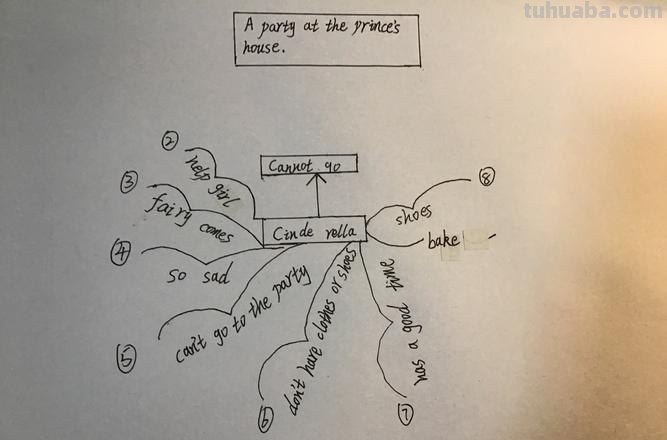 tuhuaba.com
A party at the prince's
house.
②
help girl
Cannot go
③
fairy comes
⑧
shoes
Cinde rella
bake
④
so sad
⑤
can't go to the party
⑥
don't have clothes or shoes
⑦
has a good time